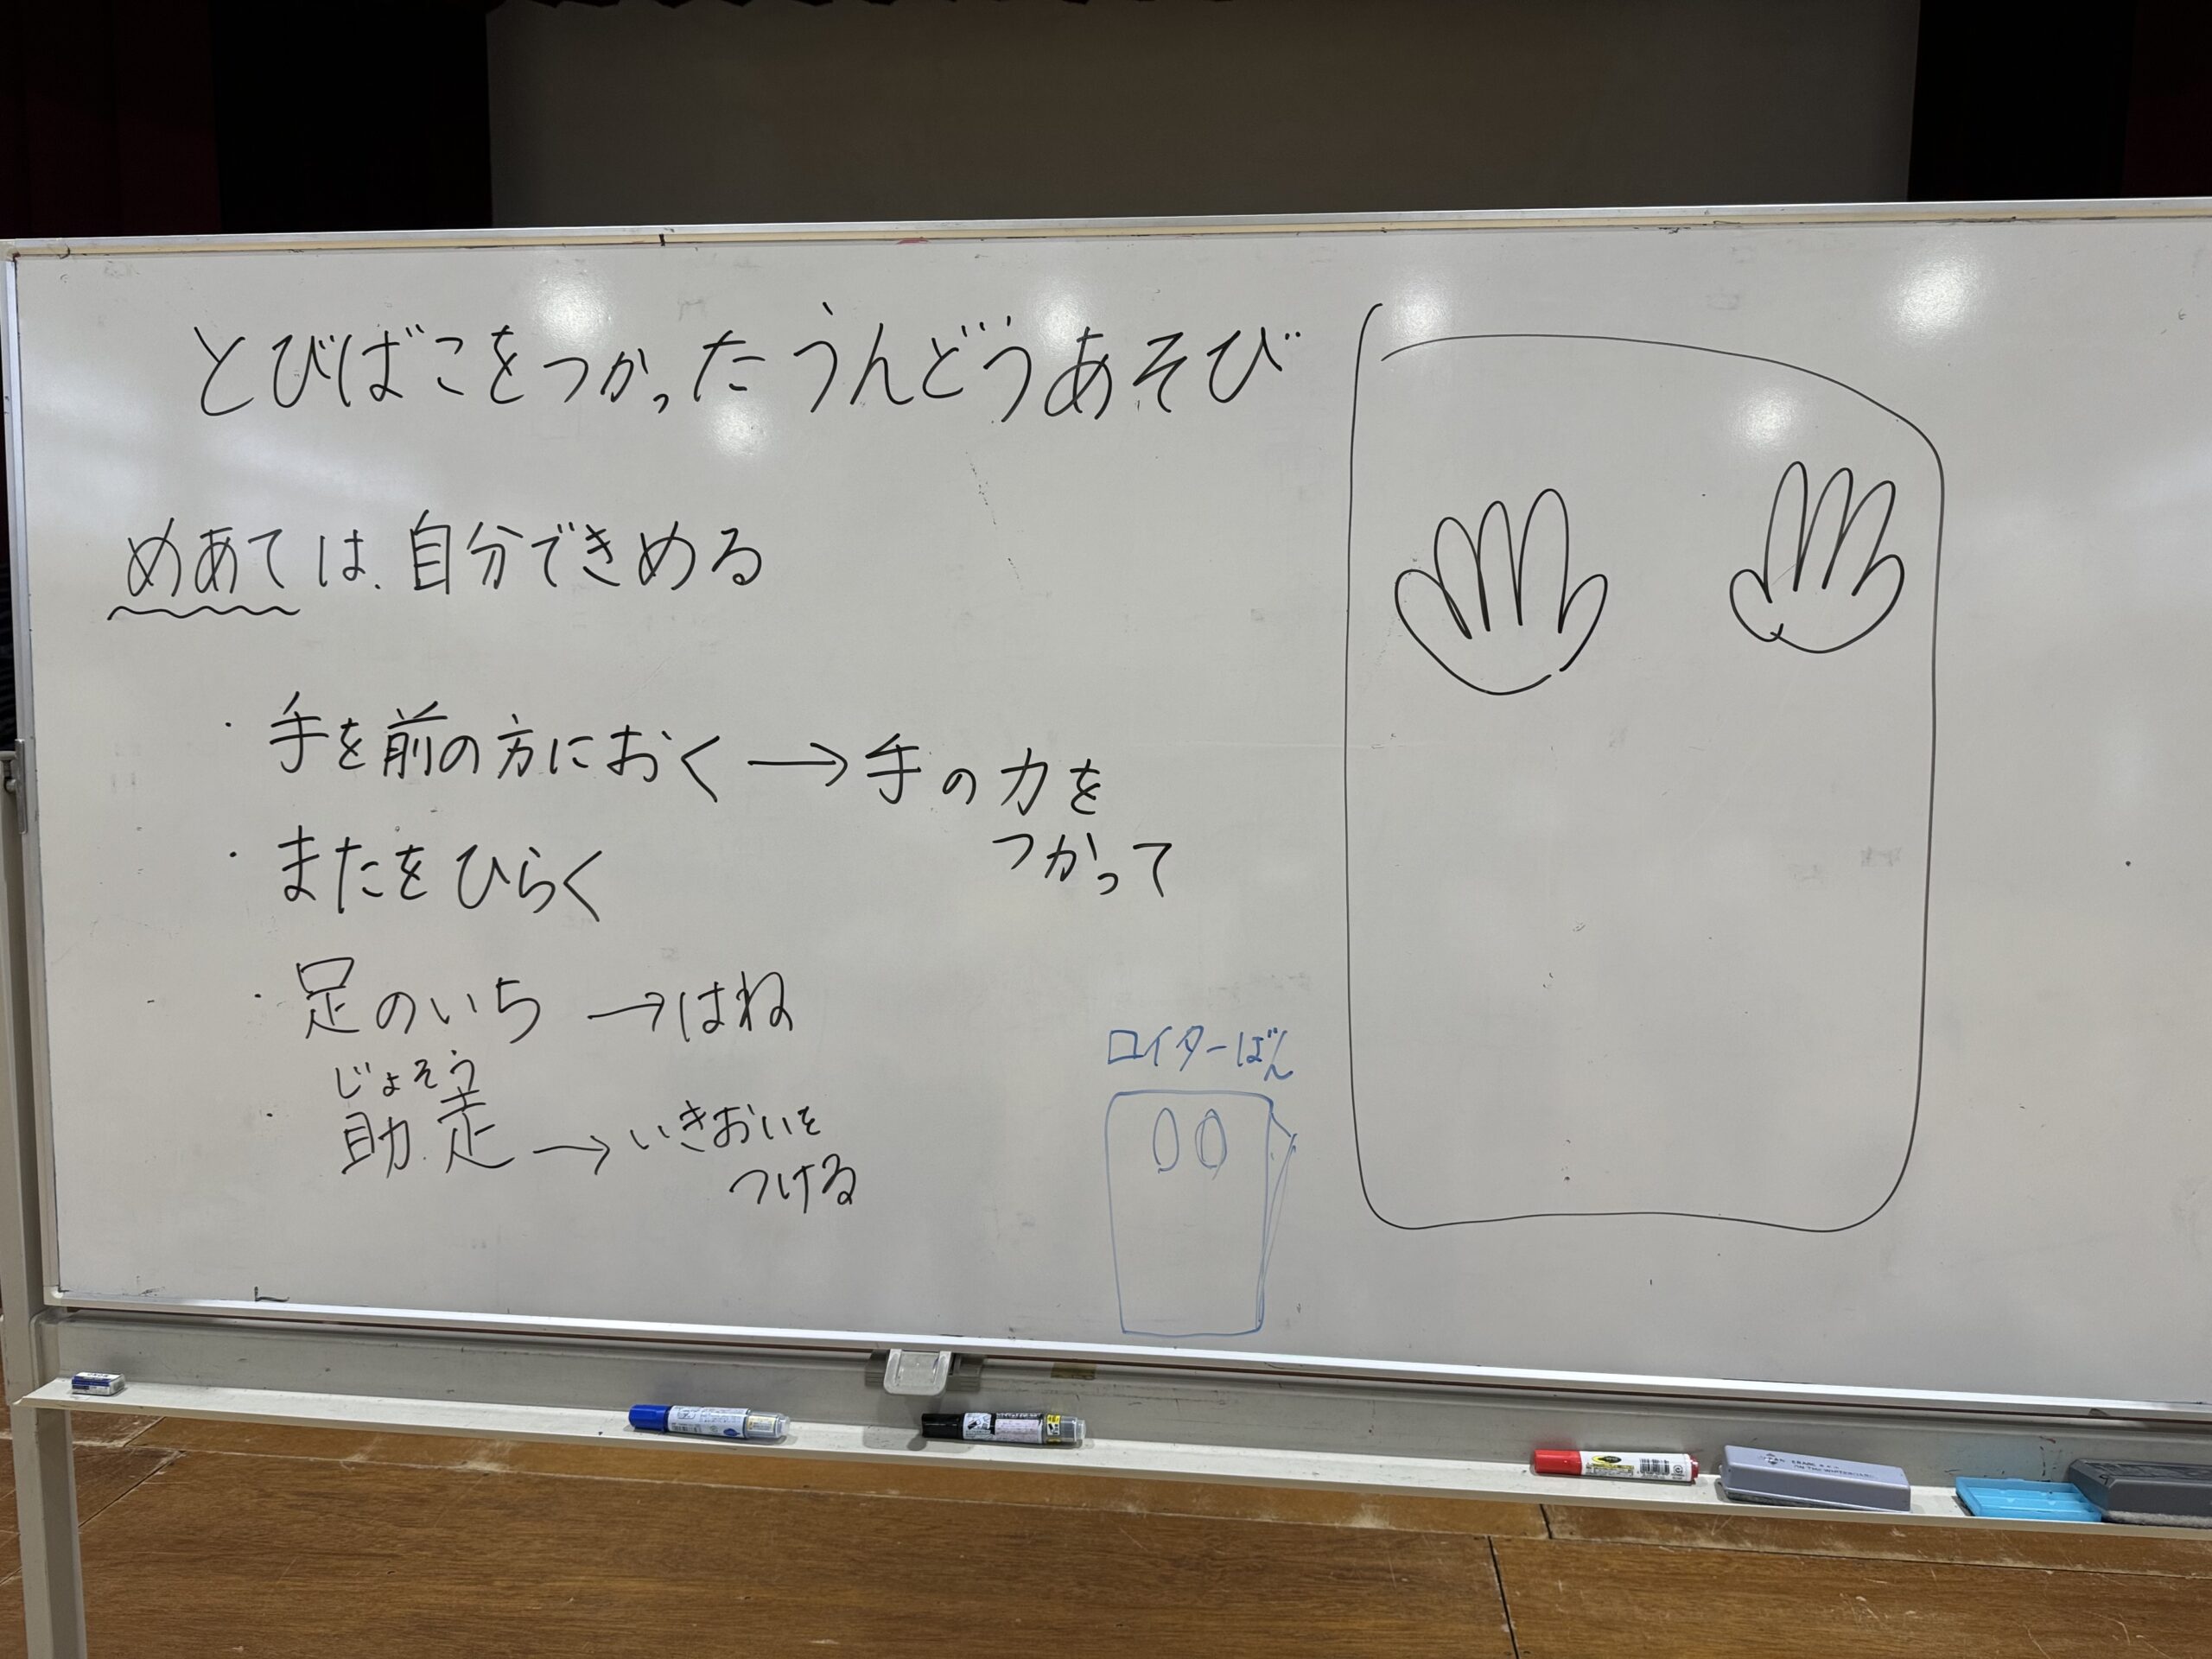 とびばこをつかったうんどうあそび
めあては、自分できめる
・手を前の方におく→手の力を
つかって
・またをひらく
・足のいち→はね
じょそう
・助走→いきおいを
つける
ロイターばん